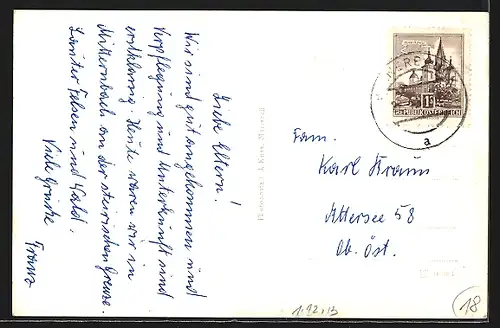 Liebe Eltern!
Wir sind gut angekommen und
Verpflegung und Unterkunft sind
erstklassig. Heute waren wir in
Mitterbach an der steirischen Grenze.
Lauter Felsen und Wald.
Viele Grüsse
Franz
Fam.
Karl Kraum
Attersee 58
Ob. Öst.
REPUBLIK ÖSTERREICH
a
1.92,13
18